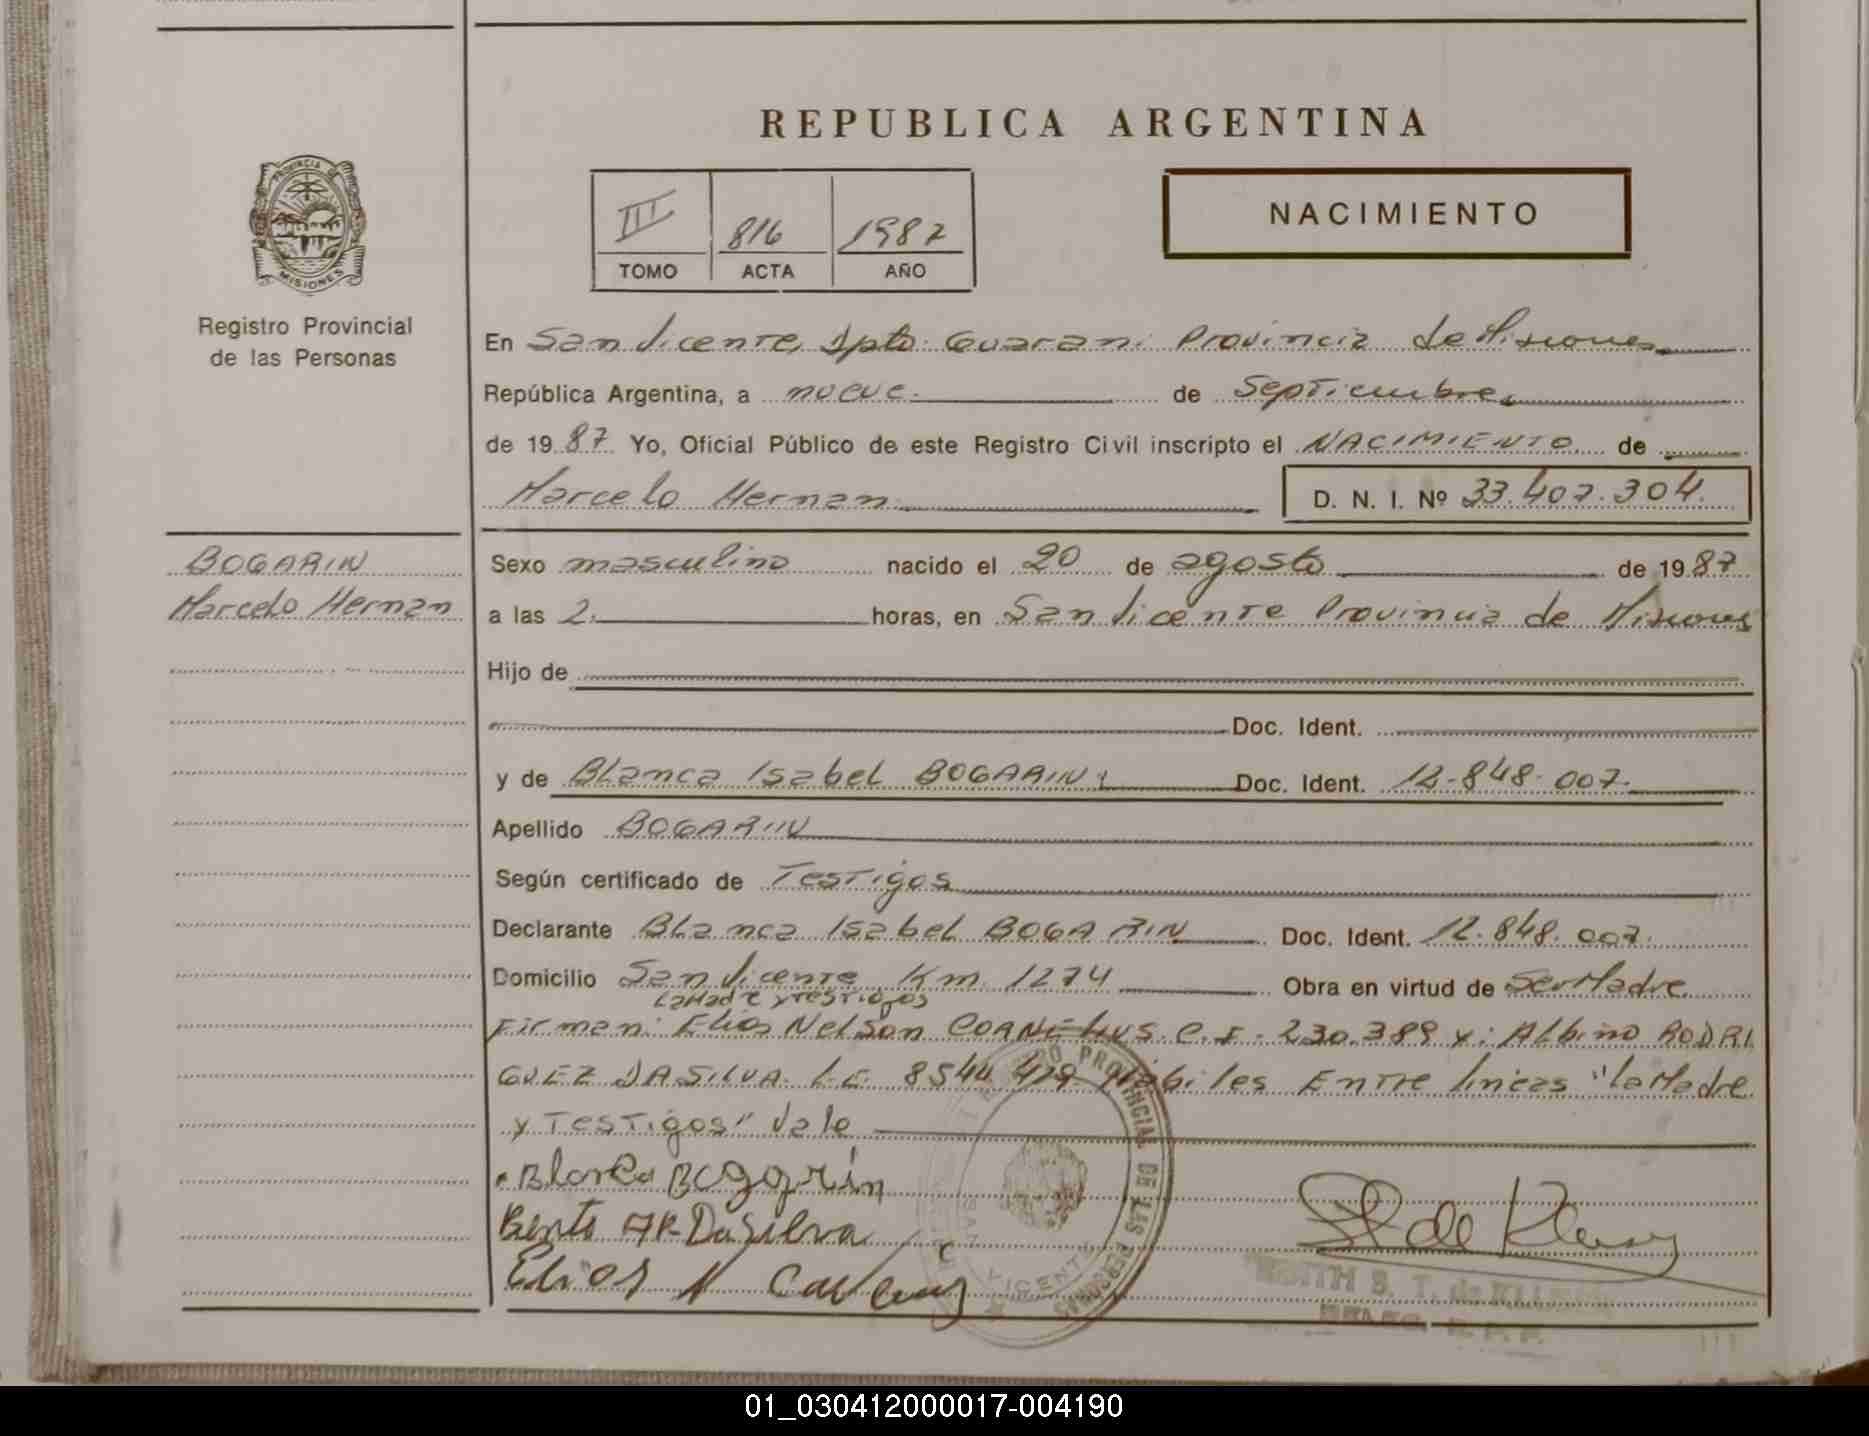 REPUBLICA ARGENTINA
III 816 1987
TOMO ACTA AÑO
NACIMIENTO
PROVINCIA
MISIONES
Registro Provincial
de las Personas
En San Vicente, Dpto. Guarani Provincia de Misiones
República Argentina, a nueve de Septiembre
de 1987 Yo, Oficial Público de este Registro Civil inscripto el NACIMIENTO de
Marcelo Hernan D. N. I. Nº 33.407.304.
BOGARIN
Marcelo Hernan
Sexo masculino nacido el 20 de agosto de 1987
a las 2. horas, en San Vicente Provincia de Misiones
Hijo de
Doc. Ident.
y de Blanca Isabel BOGARIN Doc. Ident. 12.848.007.
Apellido BOGARIN
Según certificado de Testigos
Declarante Blanca Isabel BOGARIN Doc. Ident. 12.848.007.
Domicilio San Vicente Km. 1274 Obra en virtud de Ser Madre
La Madre y Testigos
Firman: Elios Nelson CORNELIUS C.I. 230.389 y: Albino RODRI
GUEZ DASILVA L.E. 8544 419 Hábiles Entre lineas "La Madre
y Testigos" Vale
Blanca Bogarin
DaSilva
Elios N
REGISTRO PROVINCIAL DE LAS PERSONAS
SAN VICENTE
S. T. de
01_030412000017-004190